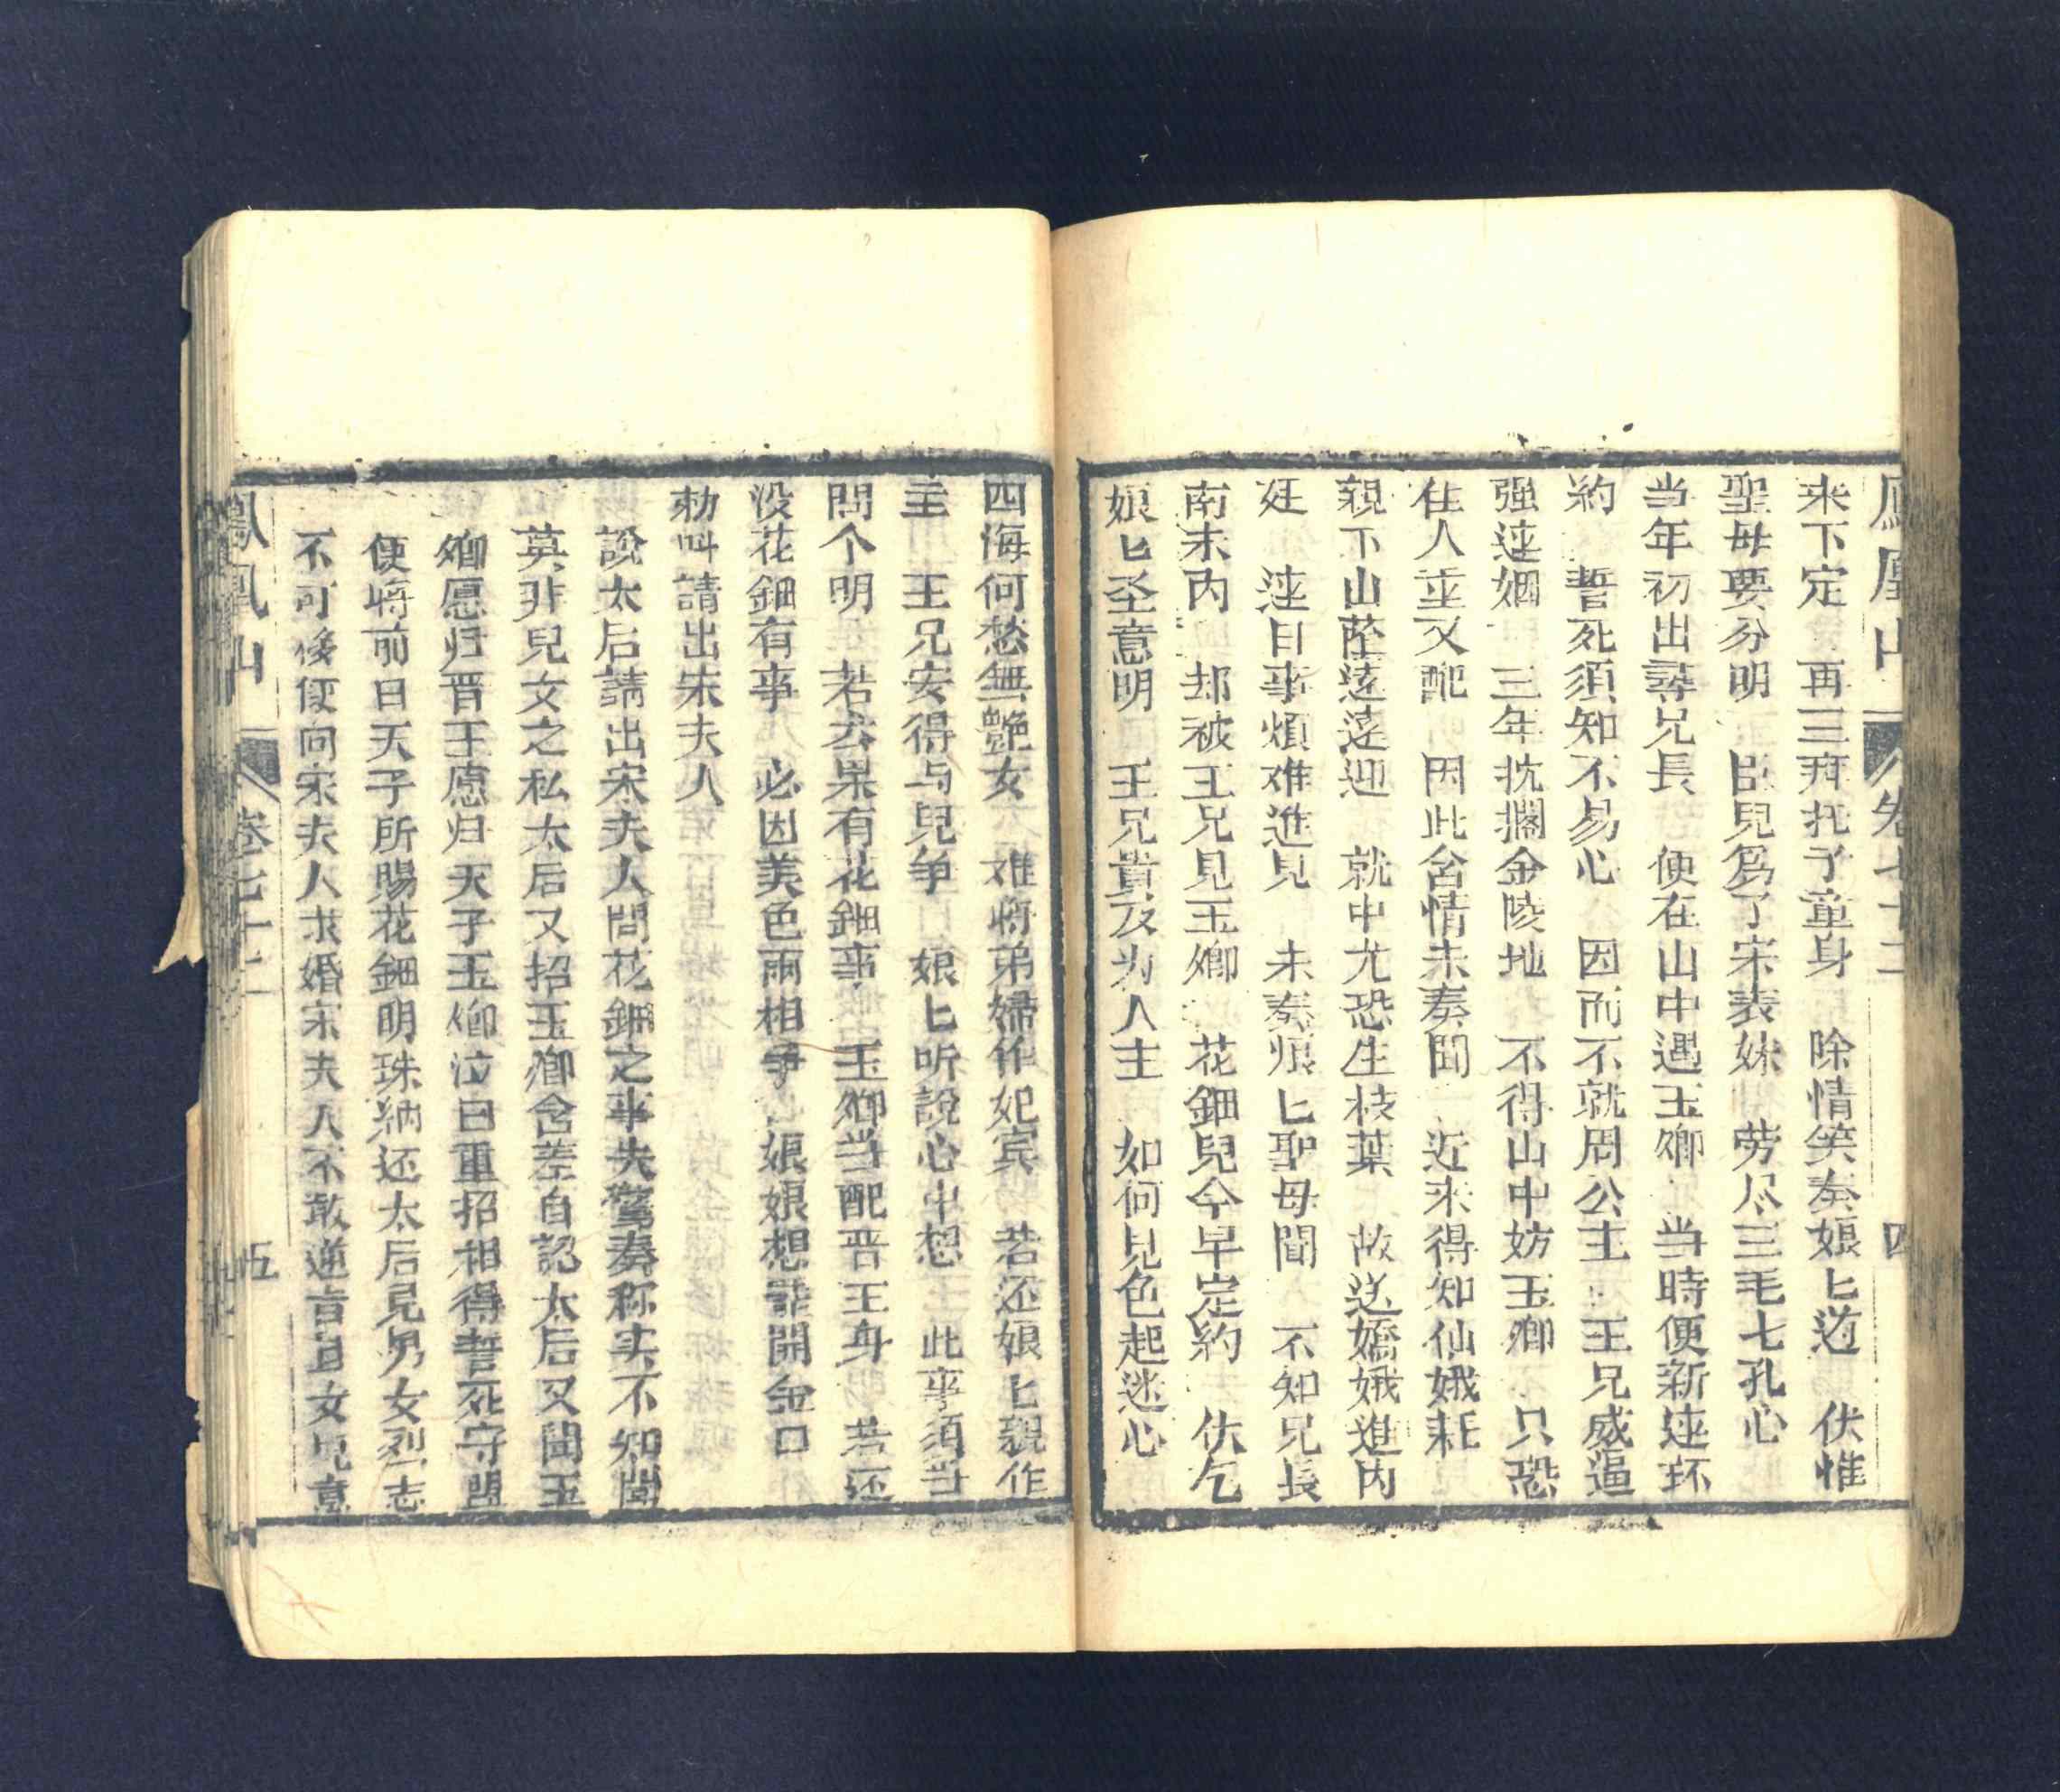 鳳凰山 卷七十二 四
来下定 再三拜托子童身 除情笑奏娘匕道 伏惟
聖母要分明 臣兒爲了宋表妹 劳尽三毛七孔心
当年初出尋兄長 便在山中遇玉卿 当時便新逹环
約 誓死須知不易心 因而不就周公主 王兄威逼
强逹姻 三年抗搁金陵地 不得山中妨玉卿 只恐
住人並又配 因此含情未奏聞 近来得知仙娥耗
親下山莝遠遠迎 就中尤恐生枝葉 故送嬌娥進内
廷 逹日事煩难進見 未奏娘匕聖母聞 不知兄長
南末内 却被王兄見玉卿 花鈿兒今早定約 伏乞
娘匕圣意明 王兄貴及为人主 如何見色起迷心
四海何愁無艶女 难將弟婦作妃宾 若还娘匕親作
主 王兄安得与兒争 娘匕听說心中想 此事須当
問个明 若云果有花鈿事 玉卿当配晋王身 若还
没花鈿有事 必因美色兩相爭 娘娘想罷開金口
勅叫請出宋夫人
說太后請出宋夫人問花鈿之事夫驚奏称实不知聞
莫非兒女之私太后又招玉卿含羞自認太后又問玉
卿愿归晋王愿归天子玉卿泣曰重招相得誓死守盟
便將前日天子所賜花鈿明珠納还太后見男女烈志
不可後便向宋夫人求婚宋夫人不敢逆旨且女兒意
鳳凰山 卷七十二 五